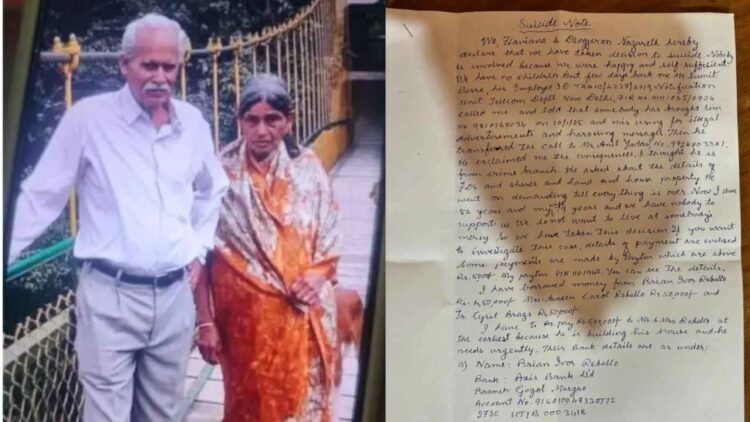 Suicide Note
We, Flavians & Diogjeron Nazareth hereby
declare that we have thken decision to suicide. Nobody
is involved because we were happy and self-sufficient.
We have no children But few days back one Mr Sumit
Birre, his Employee ID TRAID/4227/2019 Notification
unit Telecom Deptt New Delhi, FIR No. MH 1045/0904
called me and told that somebody has brought Sim
No 9810168036 on and mis using for illegal
Advertisements and harassing message. Then he
transferred the call to Mr Anil Yadav No.
He exclaimed me the consequences, I thought he is
from crime branch. He asked about the details of
FDs and shares and Land and house property. He
went on demanding till everything is over. Now I am
82 years and my 79 years and we have nobody to
support us. We donot want to live at somebody's
money So we have taken this decision. If you want
to investigate this case, details of payment are enclosed
Some payments are made by Paytm which are above
Rs. My paytm PIN You can see the details.
I have borrowed money from Brian Ivor Rebello
Rs. 4,50,000/ Mrs. Carol Rebello Rs 50,000/ and
Fr. Cyril Braga Rs 50,000/
I have to pay Rs 500,000/ to Mr & Mrs Rebello at
the earliest because he is building his house and he
needs urgently. Their Bank details are as under:
a) Name: Brian Ivor Rebello
Bank: Axis Bank Ltd
Branch: Gogol Margao
Account No. 914010048320772
IFSC UTIB 0003418